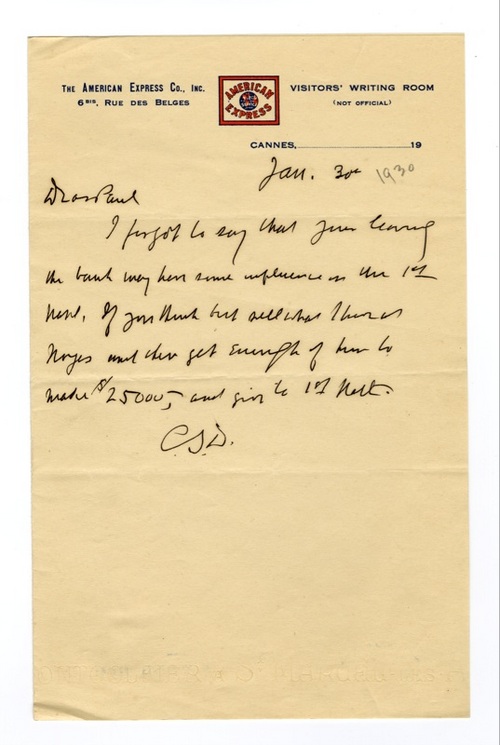 THE AMERICAN EXPRESS CO., INC.
6 BIS, RUE DES BELGES
AMERICAN
EXPRESS
VISITORS' WRITING ROOM
(NOT OFFICIAL)
CANNES, 19
Jan. 30 1930
Dear Paul
I forgot to say that your leaving
the bank may have some influence on the 1st
Natl. If you think best sell what I have at
Noyes and then get enough of him to
make $25000, and give to 1st Natl.
C.S.D.